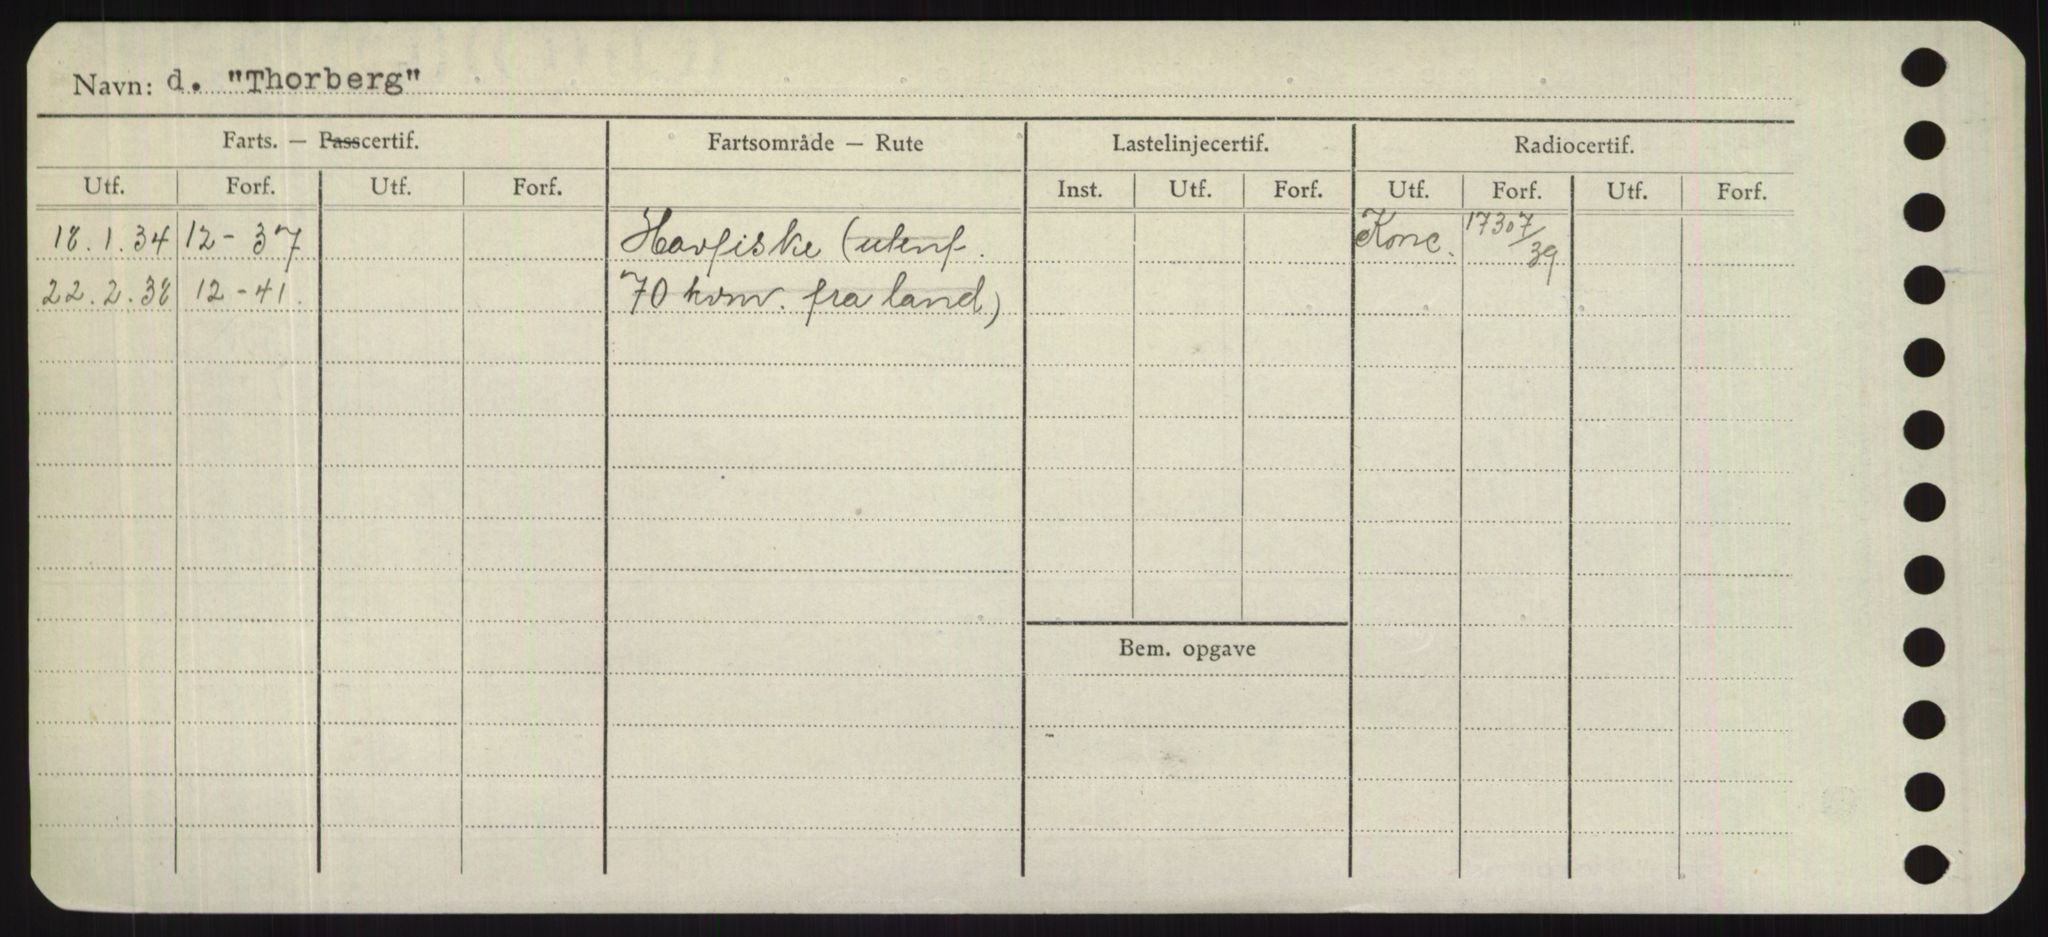 Navn: d. "Thorberg"
Farts. — Passcertif. Fartsområde — Rute Lastelinjecertif. Radiocertif.
Utf. Forf. Utf. Forf. Inst. Utf. Forf. Utf. Forf. Utf. Forf.
18.1.34 12-37 Havfiske (utenf. Konc. 17307/39
22.2.38 12-41. 70 kvm. fra land)
Bem. opgave